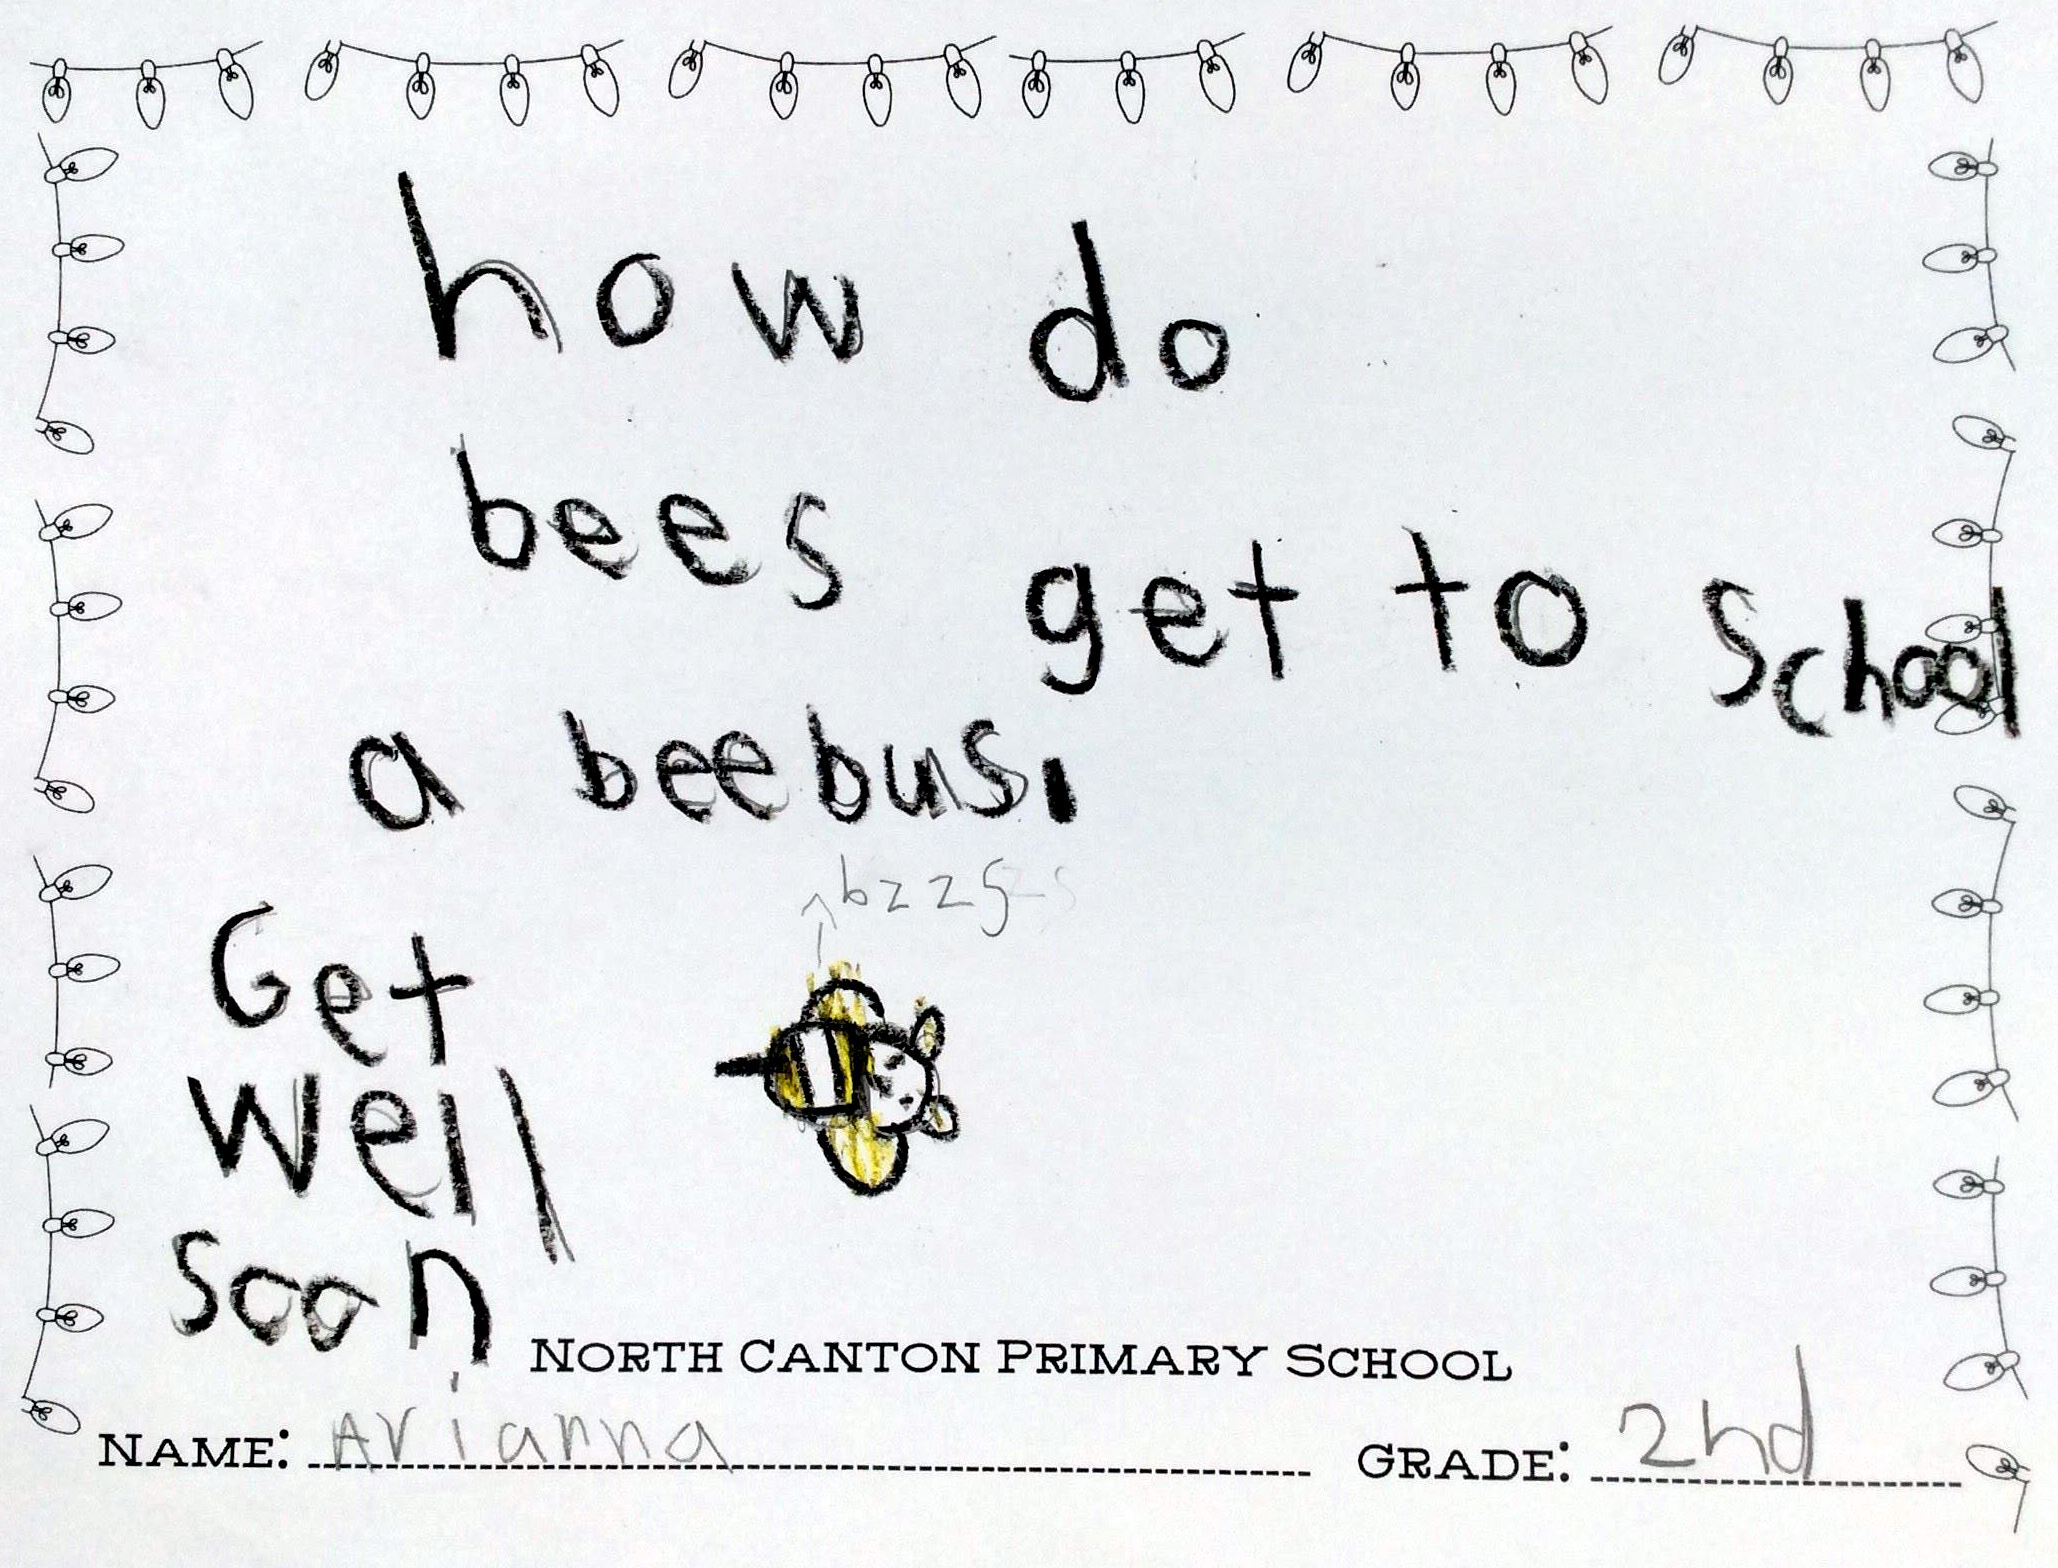 how do
bees get to school
a bee bus.
bzzs
Get
Well
soon
NORTH CANTON PRIMARY SCHOOL
NAME: Arianna GRADE: 2nd